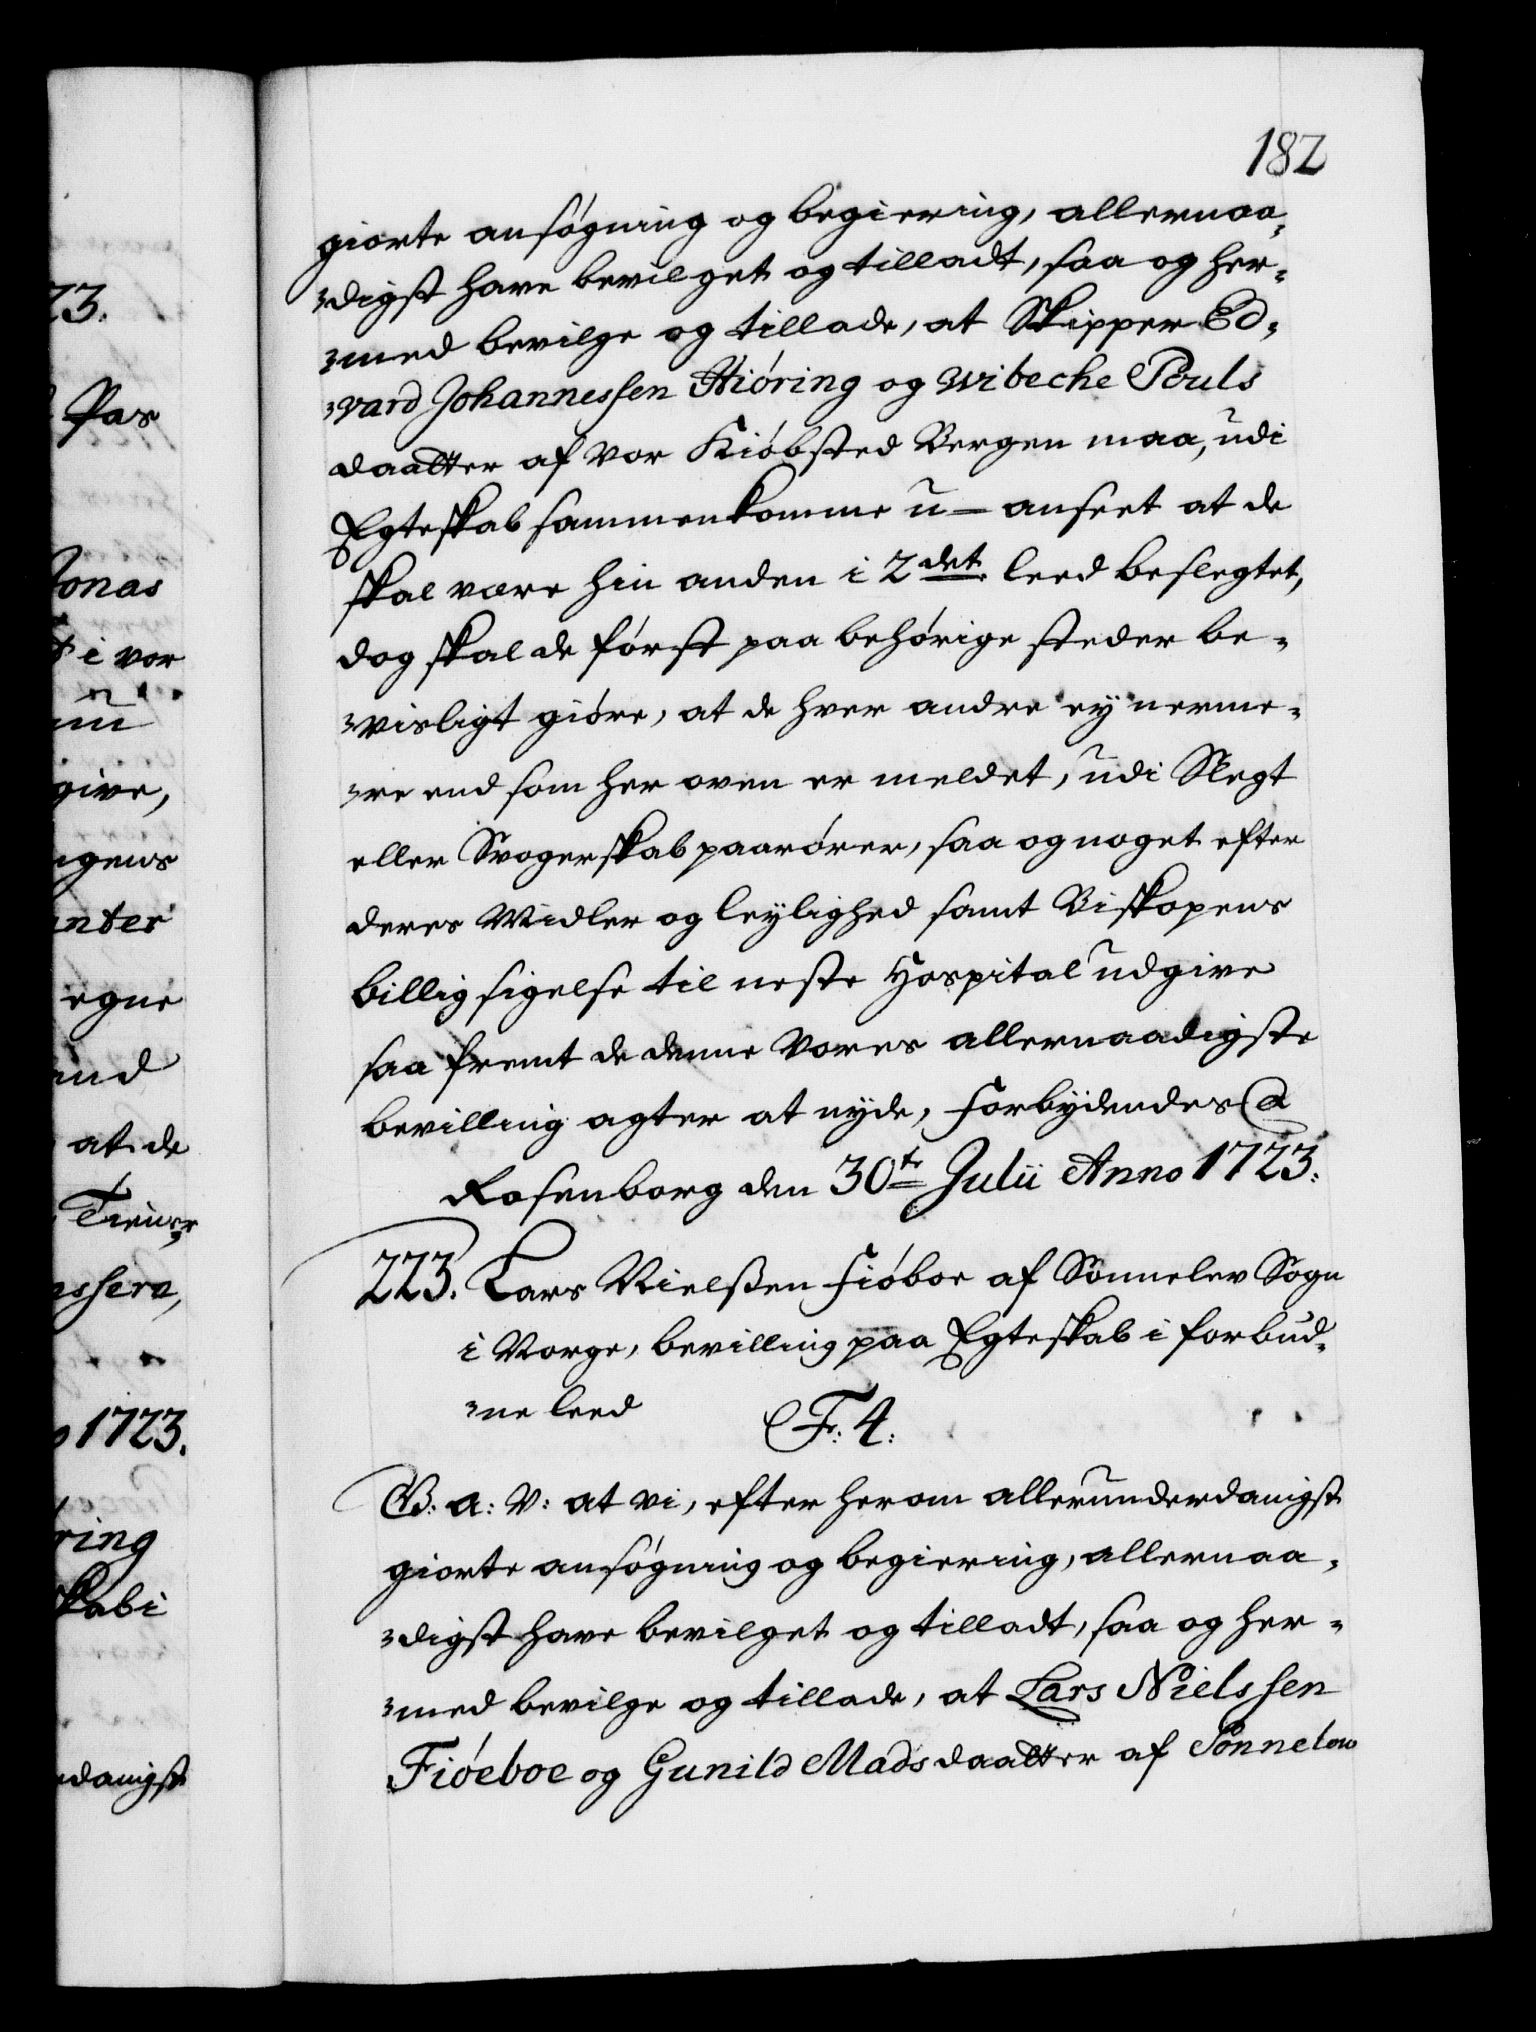 182
giorte ansøgning og begiering, allernaa-
-digst have bevilget og tilladt, saa og her-
-med bevilge og tillade, at Skipper Ed-
-vard Johannessen Hiöring og Wibeche Pouls
daatter af vor Kiøbsted Bergen maa, udi
Egteskab sammenkomme u-anseet at de
skal være hin anden i 2det leed beslegtet,
dog skal de först paa behörige steder be-
-visligt giöre, at de hver andre ey nerme-
-re end som her oven er meldet, udi Slegt
eller Svogerskab paarörer, saa og noget efter
deres Midler og leylighed samt Biskopens
billigsigelse til neste Hospital udgive
saa fremt de denne Vores allernaadigste
bevilling agter at nyde, Forbydendes &
Rosenborg den 30te Julii Anno 1723.
223. Lars Nielssen Fiöboe af Sönnelev Sogn
i Norge, bevilling paa Egteskab i forbud-
-ne leed
F. 4.
G: a: V: at vi, efter herom allerunderdanigst
giorte ansøgning og begiering, allernaa-
-digst have bevilget og tilladt, saa og her-
-med bevilge og tillade, at Lars Nielssen
Fiöeboe og Gunild Madsdaatter af Sönnelow
23.
Pas
Jonas
i vor
give,
egne
at de
1723.
ring
skab i
danigst